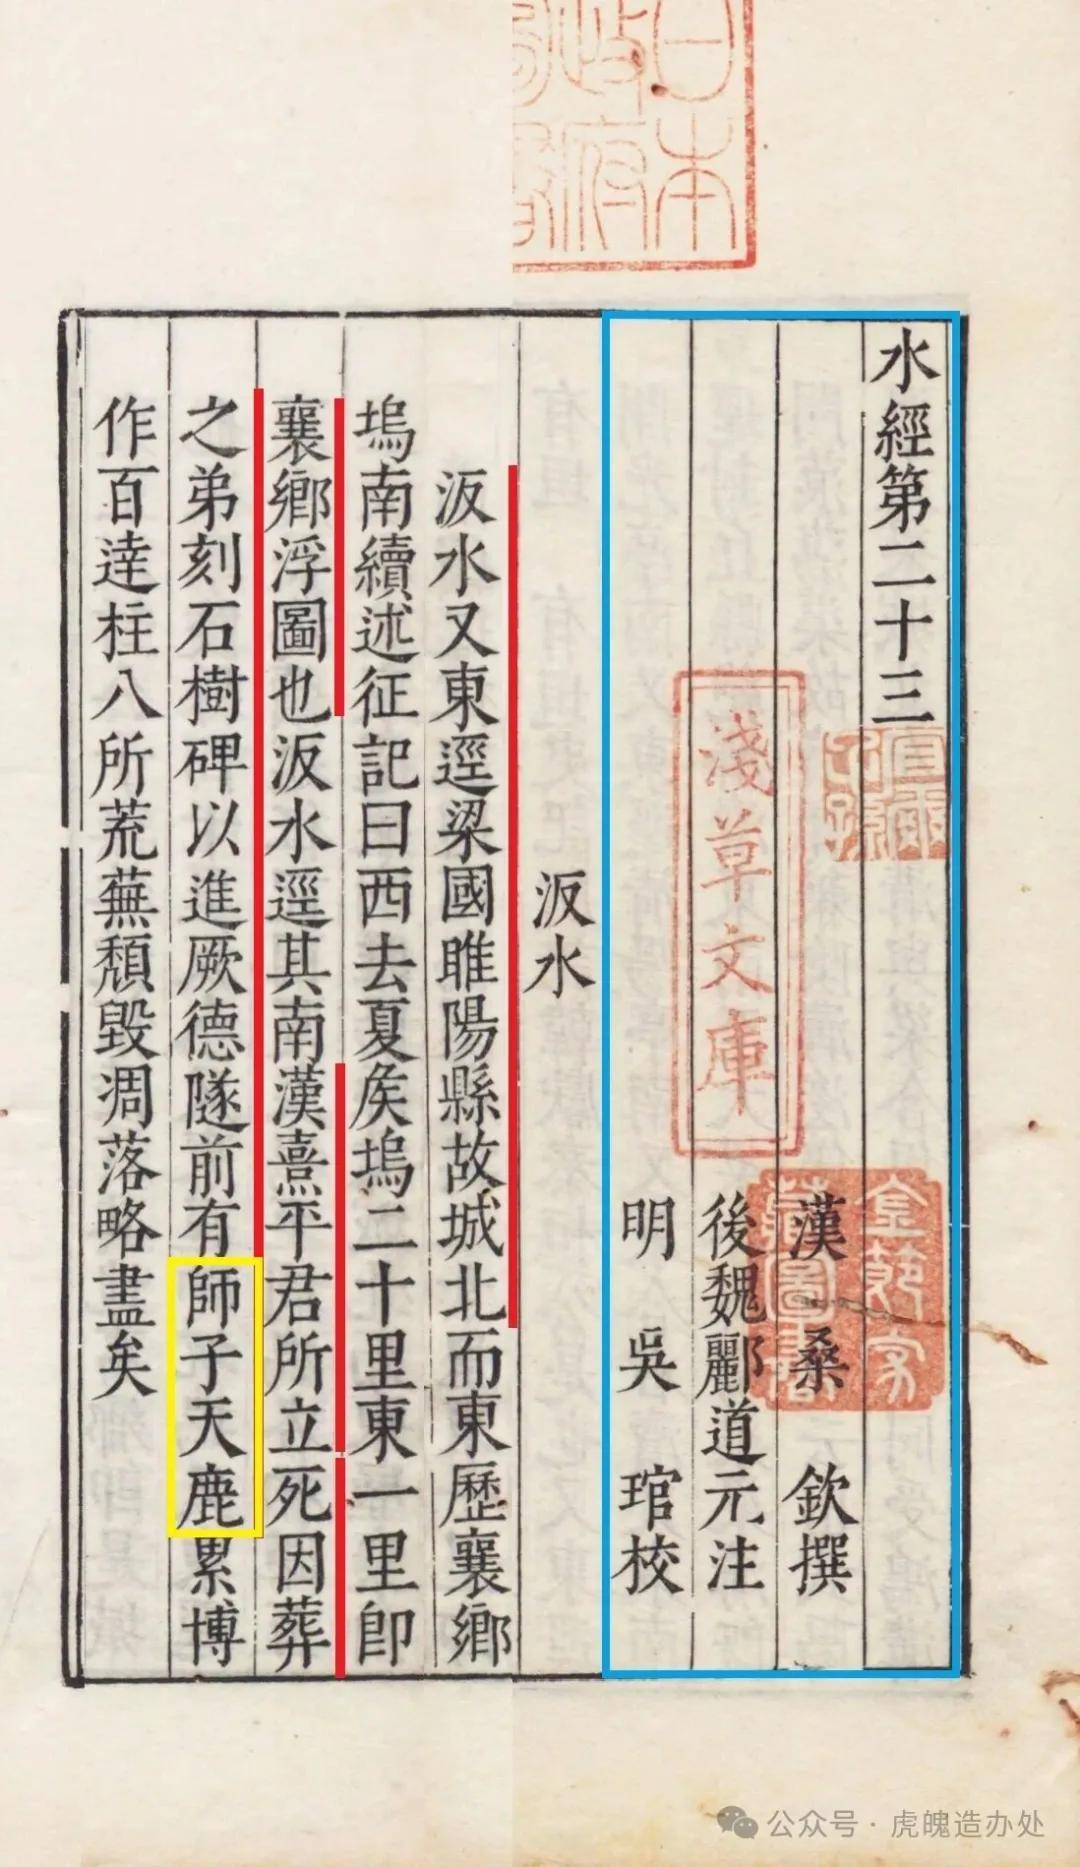 水經第二十三
漢 桑 欽撰
後魏酈道元注
明 吳 琯校
汳水
汳水又東逕梁國睢陽縣故城北而東歷襄鄉
塢南續述征記曰西去夏矦塢二十里東一里卽
襄鄉浮圖也汳水逕其南漢熹平君所立死因葬
之弟刻石樹碑以進厥德隧前有師子天鹿累博
作百逹柱八所荒蕪頹毀凋落略盡矣
淺草文庫
日本政府圖書
公众号·虎魄造办处